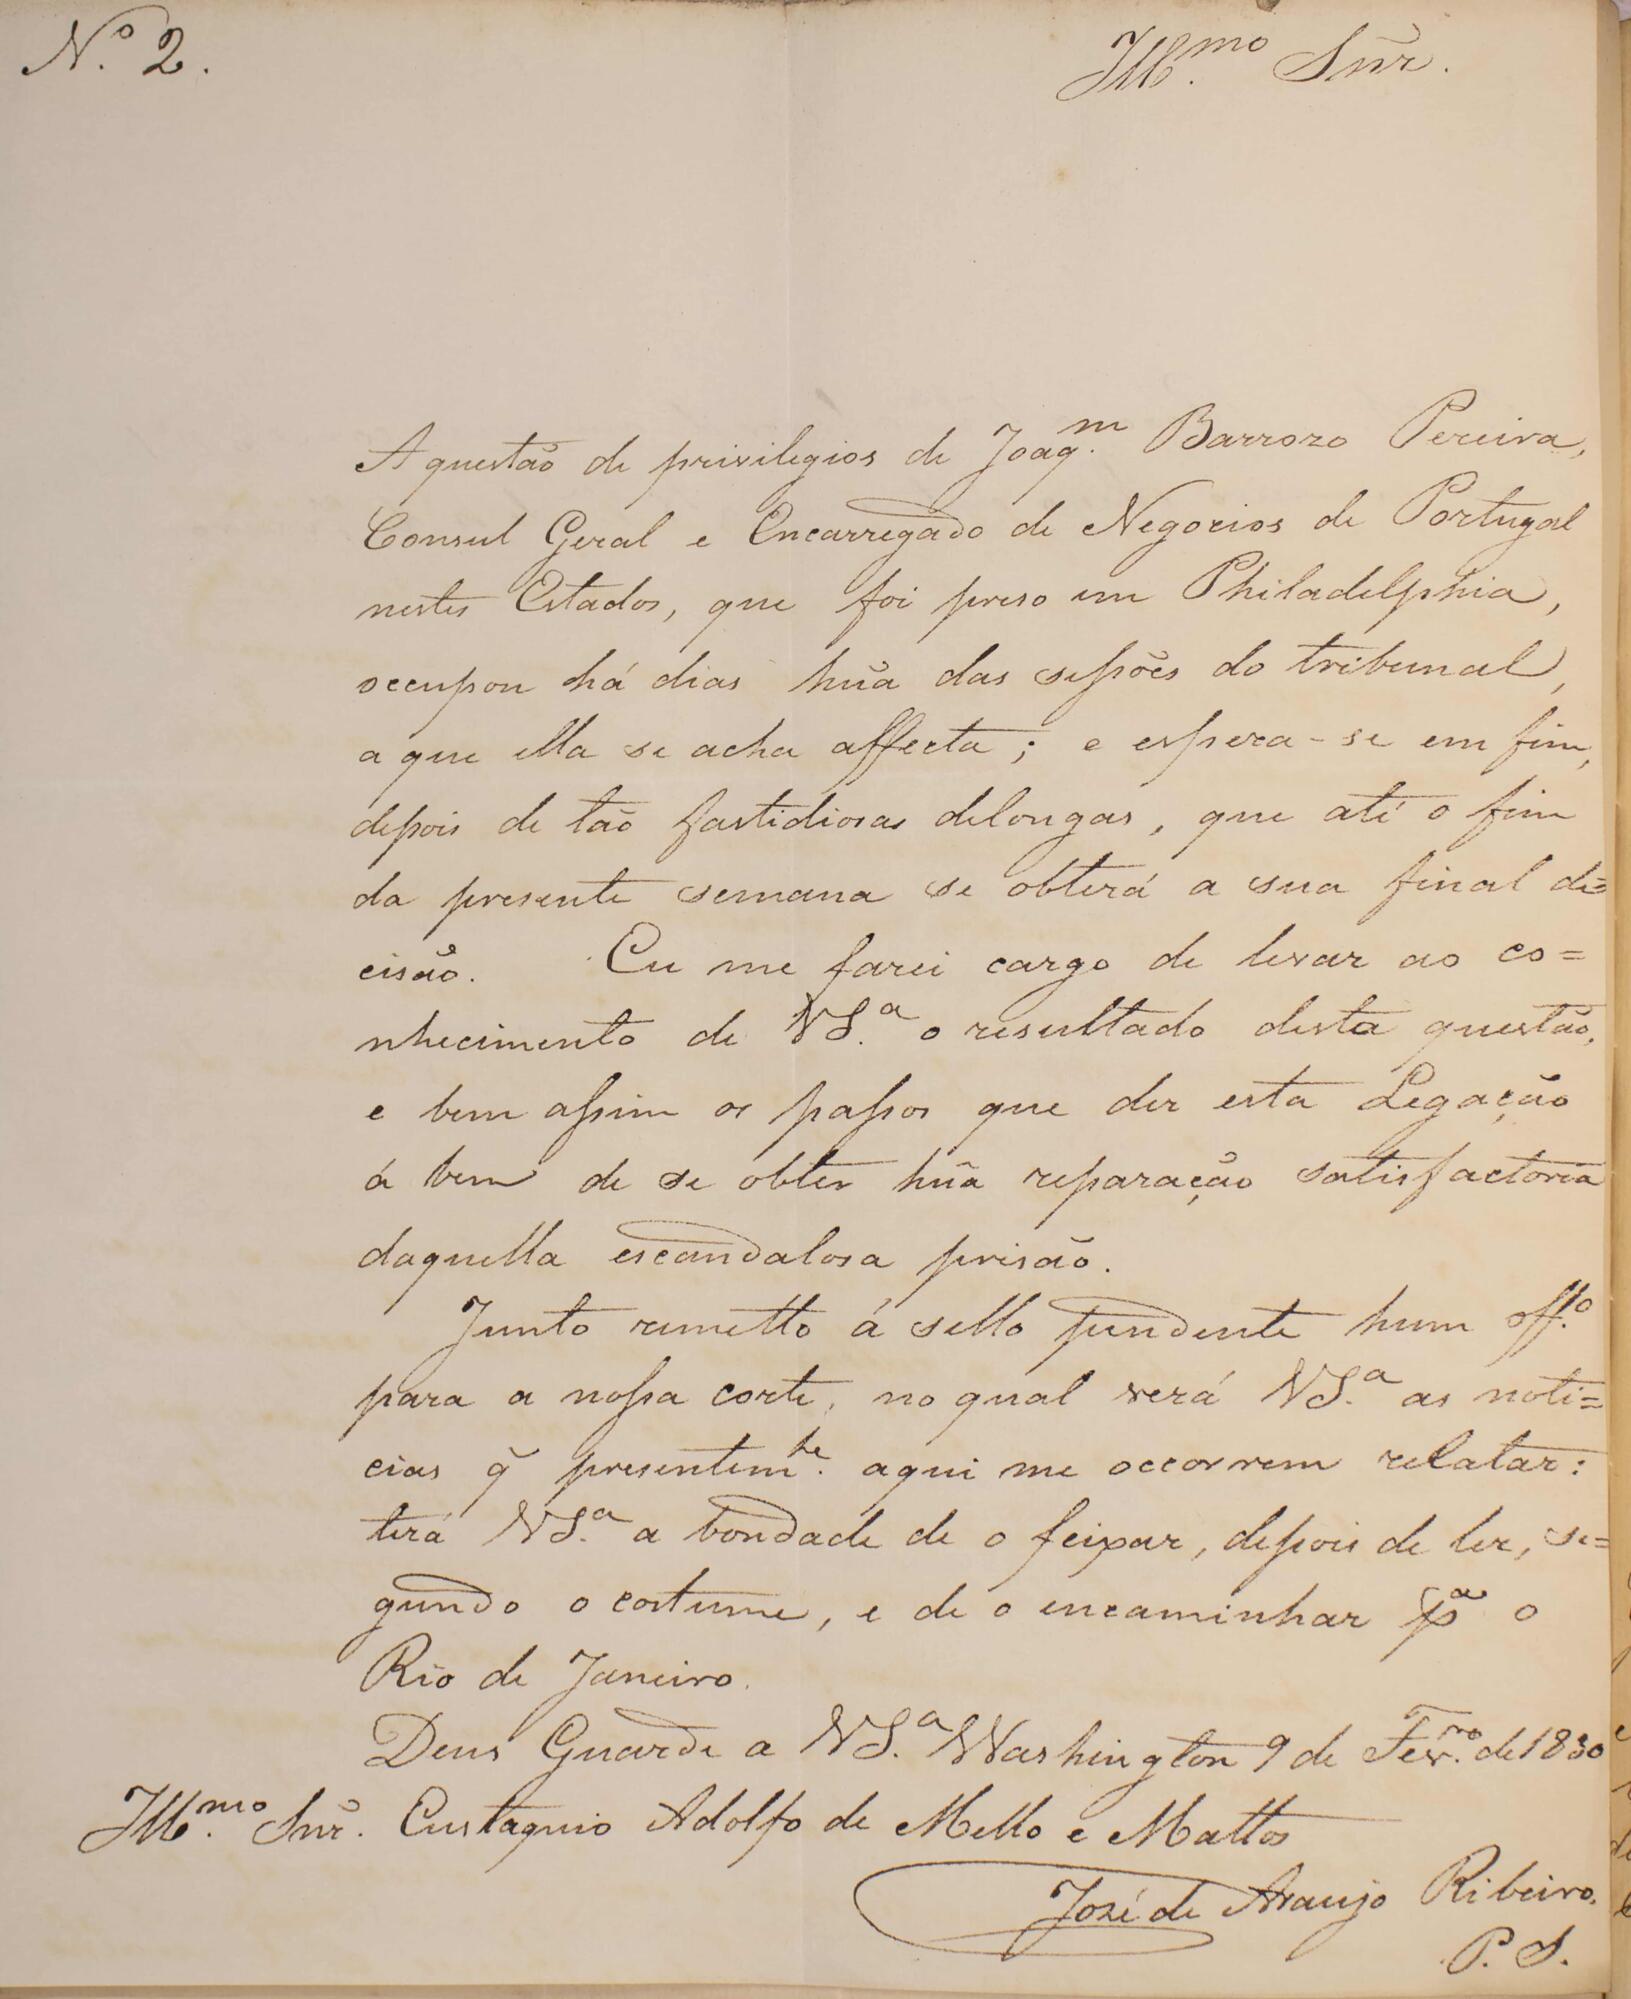 N.º 2.
Ill.mo Snr.
A questão de privilegios de Joaq.m Barrozo Pereira,
Consul Geral e Encarregado de Negocios de Portugal
nestes Estados, que foi preso em Philadelphia,
occupou há dias hũa das seſsões do tribunal,
a que ella se acha affecta; e espera-se em fim,
depois de tão fastidiosas delongas, que até o fim
da presente semana se obterá a sua final de=
cisão. Eu me farei cargo de levar ao co=
nhecimento de VS.a o resultado desta questão,
e bem aſsim os paſsos que der esta Legação
á bem de se obter hũa reparação satisfactoria
daquella escandalosa prisão.
Junto remetto á sello pendente hum off.o
para a noſsa corte, no qual verá VS.a as noti=
cias q̃ presentem.te aqui me occorrem relatar:
terá VS.a a bondade de o feixar, depois de ler, se=
gundo o costume, e de o encaminhar pa o
Rio de Janeiro.
Deus Guarde a VS.a Washington 9 de Fev.ro de 1830
Ill.mo Snr. Eustaquio Adolfo de Mello e Mattos
José de Araujo Ribeiro.
P. S.